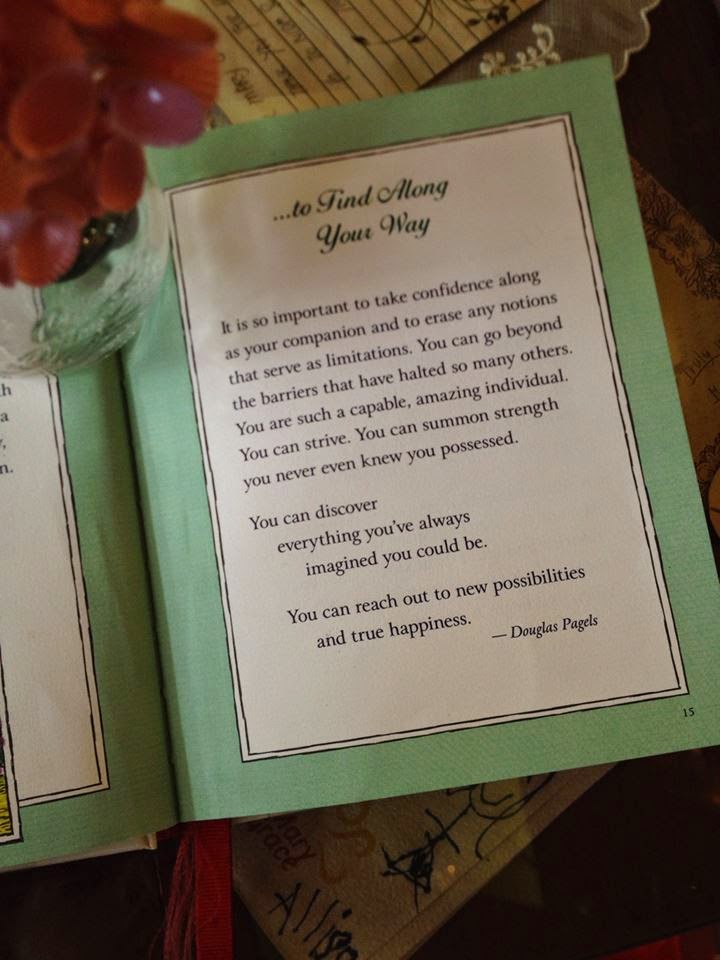 ...to Find Along
Your Way
It is so important to take confidence along
as your companion and to erase any notions
that serve as limitations. You can go beyond
the barriers that have halted so many others.
You are such a capable, amazing individual.
You can strive. You can summon strength
you never even knew you possessed.
You can discover
everything you've always
imagined you could be.
You can reach out to new possibilities
and true happiness.
— Douglas Pagels
15
Mary
Grace